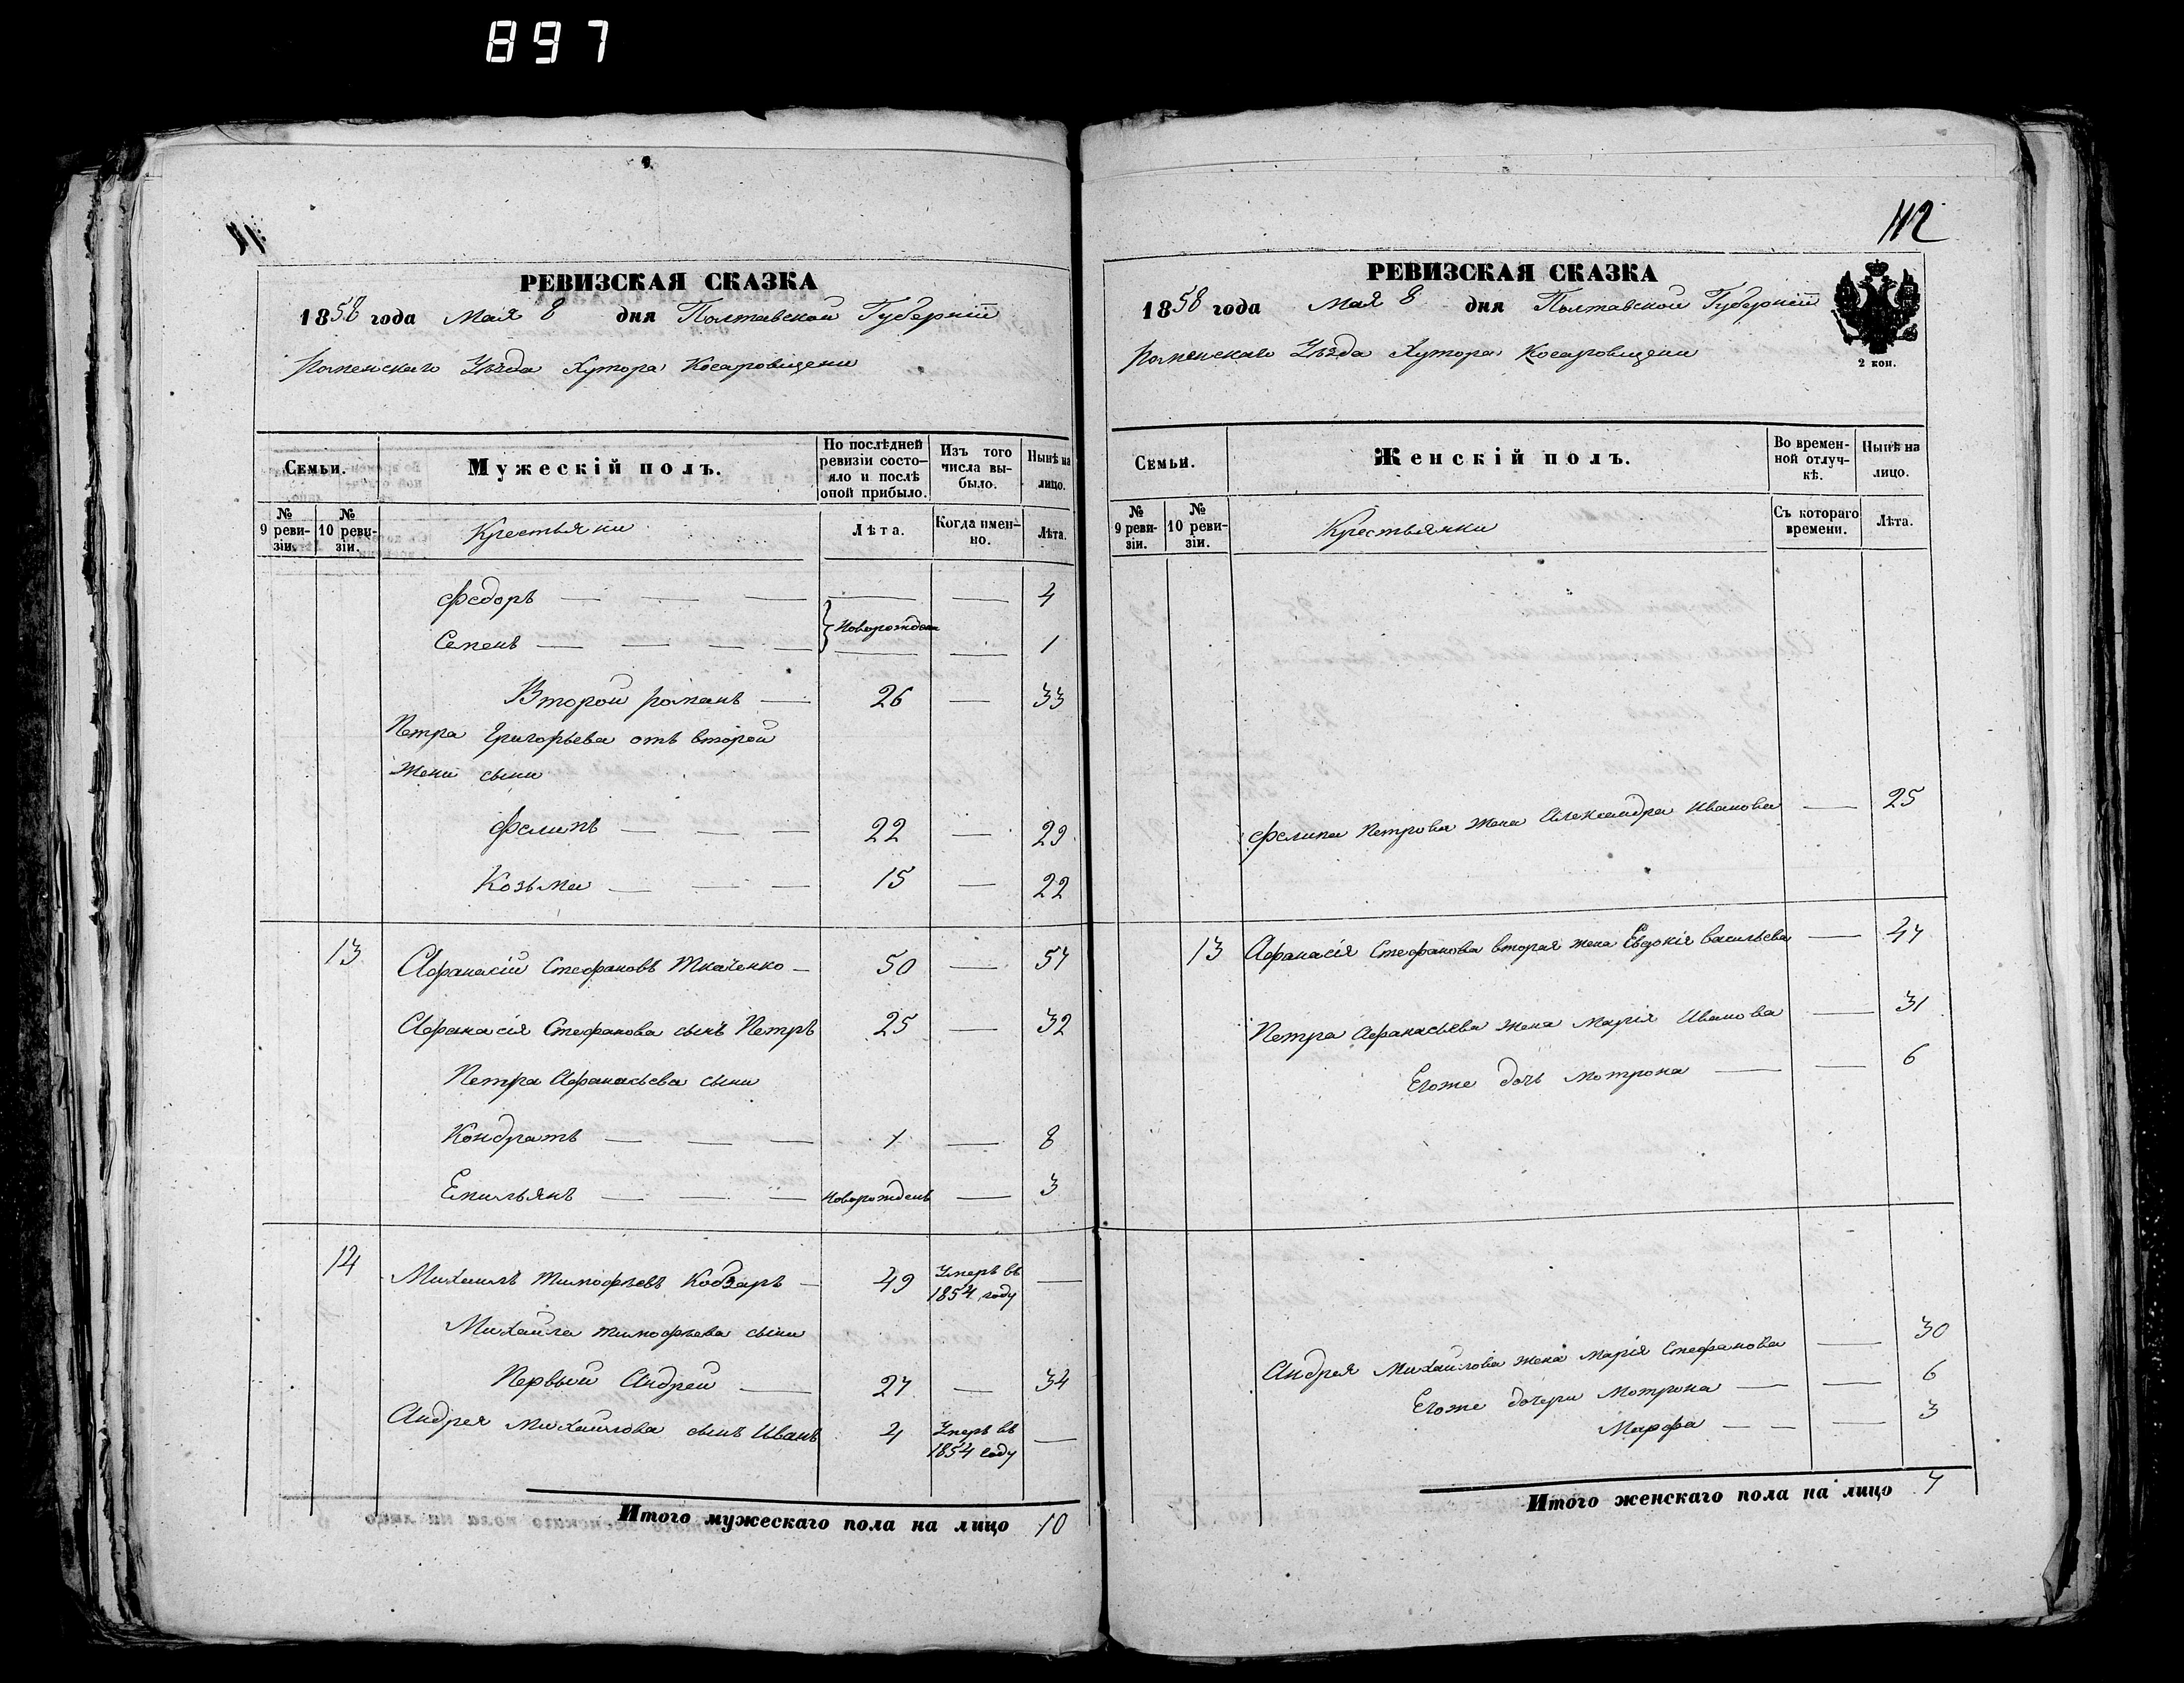 897
РЕВИЗСКАЯ СКАЗКА
1858 года Мая 8 дня Полтавской Губерніи
Роменскаго Уѣзда Хутора Косаровщени
Семьи.
Мужескій полъ.
По послѣдней ревизіи состо-яло и послѣ оной прибыло.
Изъ того числа вы-было.
Нынѣ на лицо.
№ 9 реви-зіи.
№ 10 реви-зіи.
Крестьяни
Лѣта.
Когда имен-но.
Лѣта.
Федоръ — — — — — 4
Новорожден
Семенъ — — — — — — 1
Второй Романъ — 26 — 33
Петра Григорьева отъ второй
жени сыни
Фелипъ — — — 22 — 29
Козьма — — — 15 — 22
13 Афанасій Стефановъ Ткаченко — 50 — 57
Афанасія Стефанова сынъ Петръ 25 — 32
Петра Афанасьева сыни
Кондратъ — — — 1 — 8
Емильянъ — — — новорожденъ — 3
14 Михаилъ Тимофѣевъ Кобзарь — 49 Умеръ въ 1854 году —
Михайла Тимофѣева сыни
Первый Андрей — 27 — 34
Андрея Михайлова сынъ Иванъ 4 Умеръ въ 1854 году —
Итого мужескаго пола на лицо 10
112
РЕВИЗСКАЯ СКАЗКА
1858 года Мая 8 дня Полтавской Губерніи
2 коп.
Роменскаго Уѣзда Хутора Косаровщени
Семьи.
Женскій полъ.
Во времен-ной отлуч-кѣ.
Нынѣ на лицо.
№ 9 реви-зіи.
№ 10 реви-зіи.
Крестьянки
Съ котораго времени.
Лѣта.
Фелипа Петрова жена Александра Иванова — 25
13 Афанасія Стефанова вторая жена Евдокія Васильева — 47
Петра Афанасьева жена Марія Иванова — 31
Егоже дочь Мотрона — — 6
Андрея Михайлова жена Марія Стефанова — 30
Егоже дочери Мотрона — — 6
Марфа — — — 3
Итого женскаго пола на лицо 7